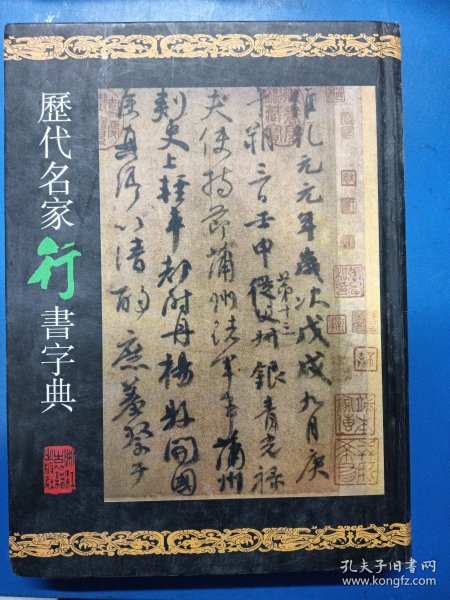 歷代名家行書字典
維乾元元年歲次戊戌九月庚
午朔三日壬申從父叔銀青光祿
第十三
夫使持節蒲州諸軍事蒲州
刺史上輕車都尉丹楊縣開國
侯真卿以清酌庶羞祭于
孔夫子旧书网
www.kongfz.com